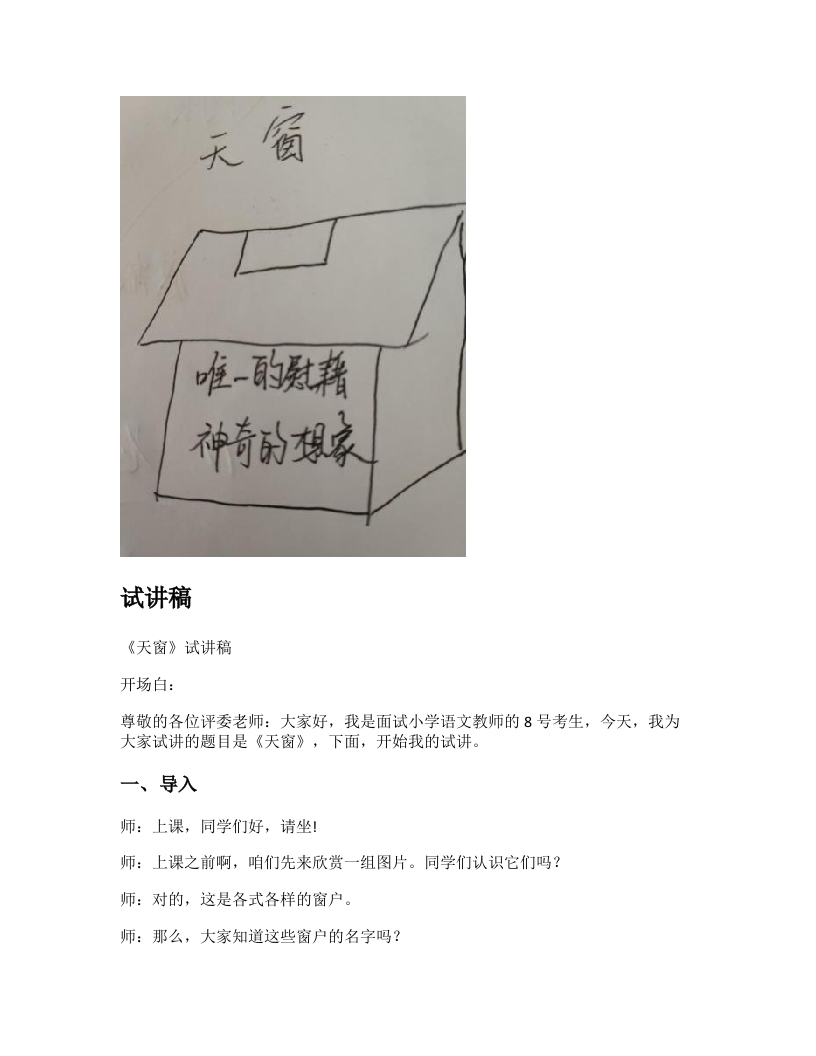 天窗
唯一的慰藉
神奇的想象
试讲稿
《天窗》试讲稿
开场白：
尊敬的各位评委老师：大家好，我是面试小学语文教师的 8 号考生，今天，我为
大家试讲的题目是《天窗》，下面，开始我的试讲。
一、导入
师：上课，同学们好，请坐!
师：上课之前啊，咱们先来欣赏一组图片。同学们认识它们吗？
师：对的，这是各式各样的窗户。
师：那么，大家知道这些窗户的名字吗？